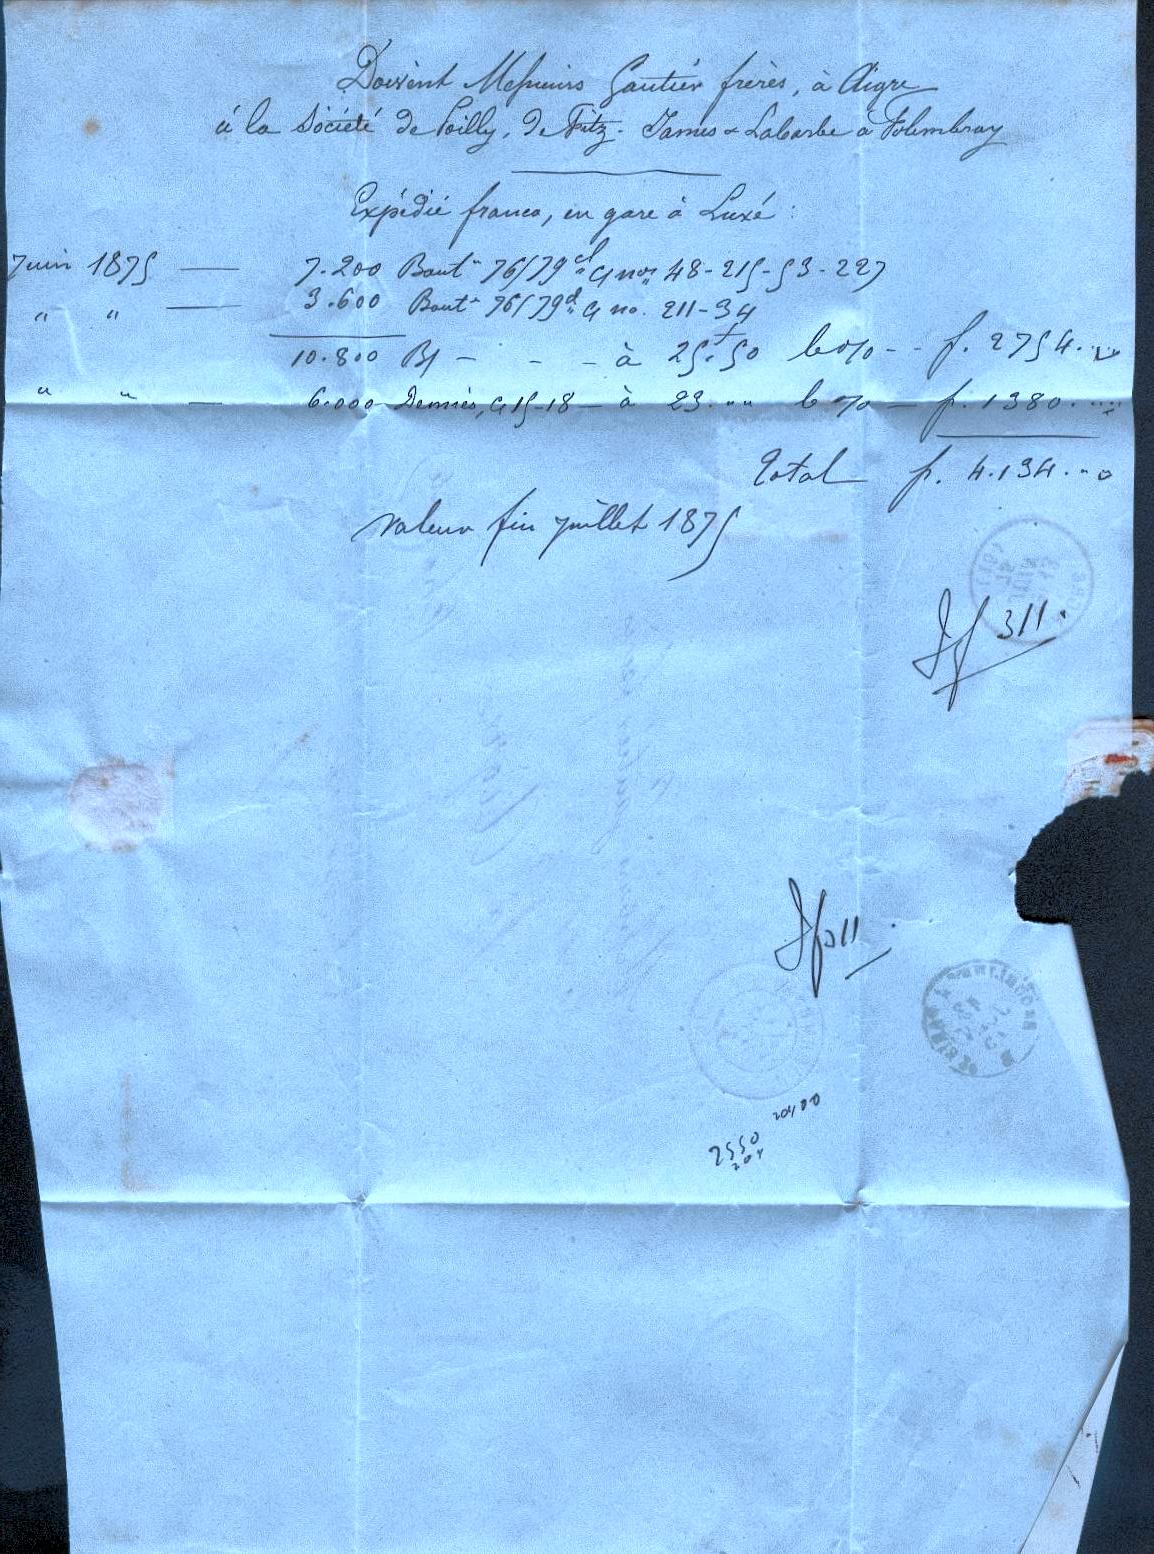 Doivent Messieurs Gautier frères, à Aigre
à la Société de Poilly, de Fitz-James & Labarbe à Folembray
Expédié franco, en gare à Luxé :
Juin 1875 — 7.200 Bout^les 76/79^cl G nos 48-215-53-227
" " — 3.600 Bout^les 76/79^cl G no. 211-34
10.800 B^les - - - à 25f.50 le % - - f. 2754. ..
" " — 6.000 Demies, G 15-18 - à 23. .. le % - f. 1380. ..
Total f. 4.134. ..
Valeur fin juillet 1875
311.
311
20400
2550
204